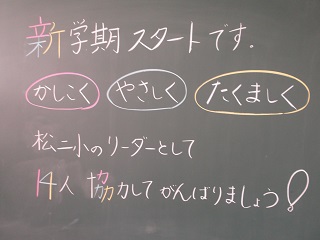 新学期スタートです.
かしこく やさしく たくましく
松二小のリーダーとして
14人 協力してがんばりましょう!